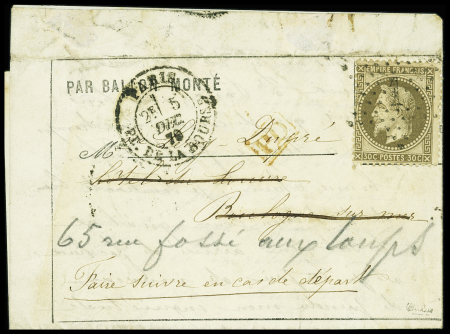 PAR BALLON MONTÉ
PARIS
2E 5
DEC
70
PL. DE LA BOURSE
EMPIRE FRANÇAIS
30C POSTES 30C
M Dupré
Hôtel du Louvre
Boulogne sur mer
65 rue fossé aux loups
Faire suivre en cas de départ